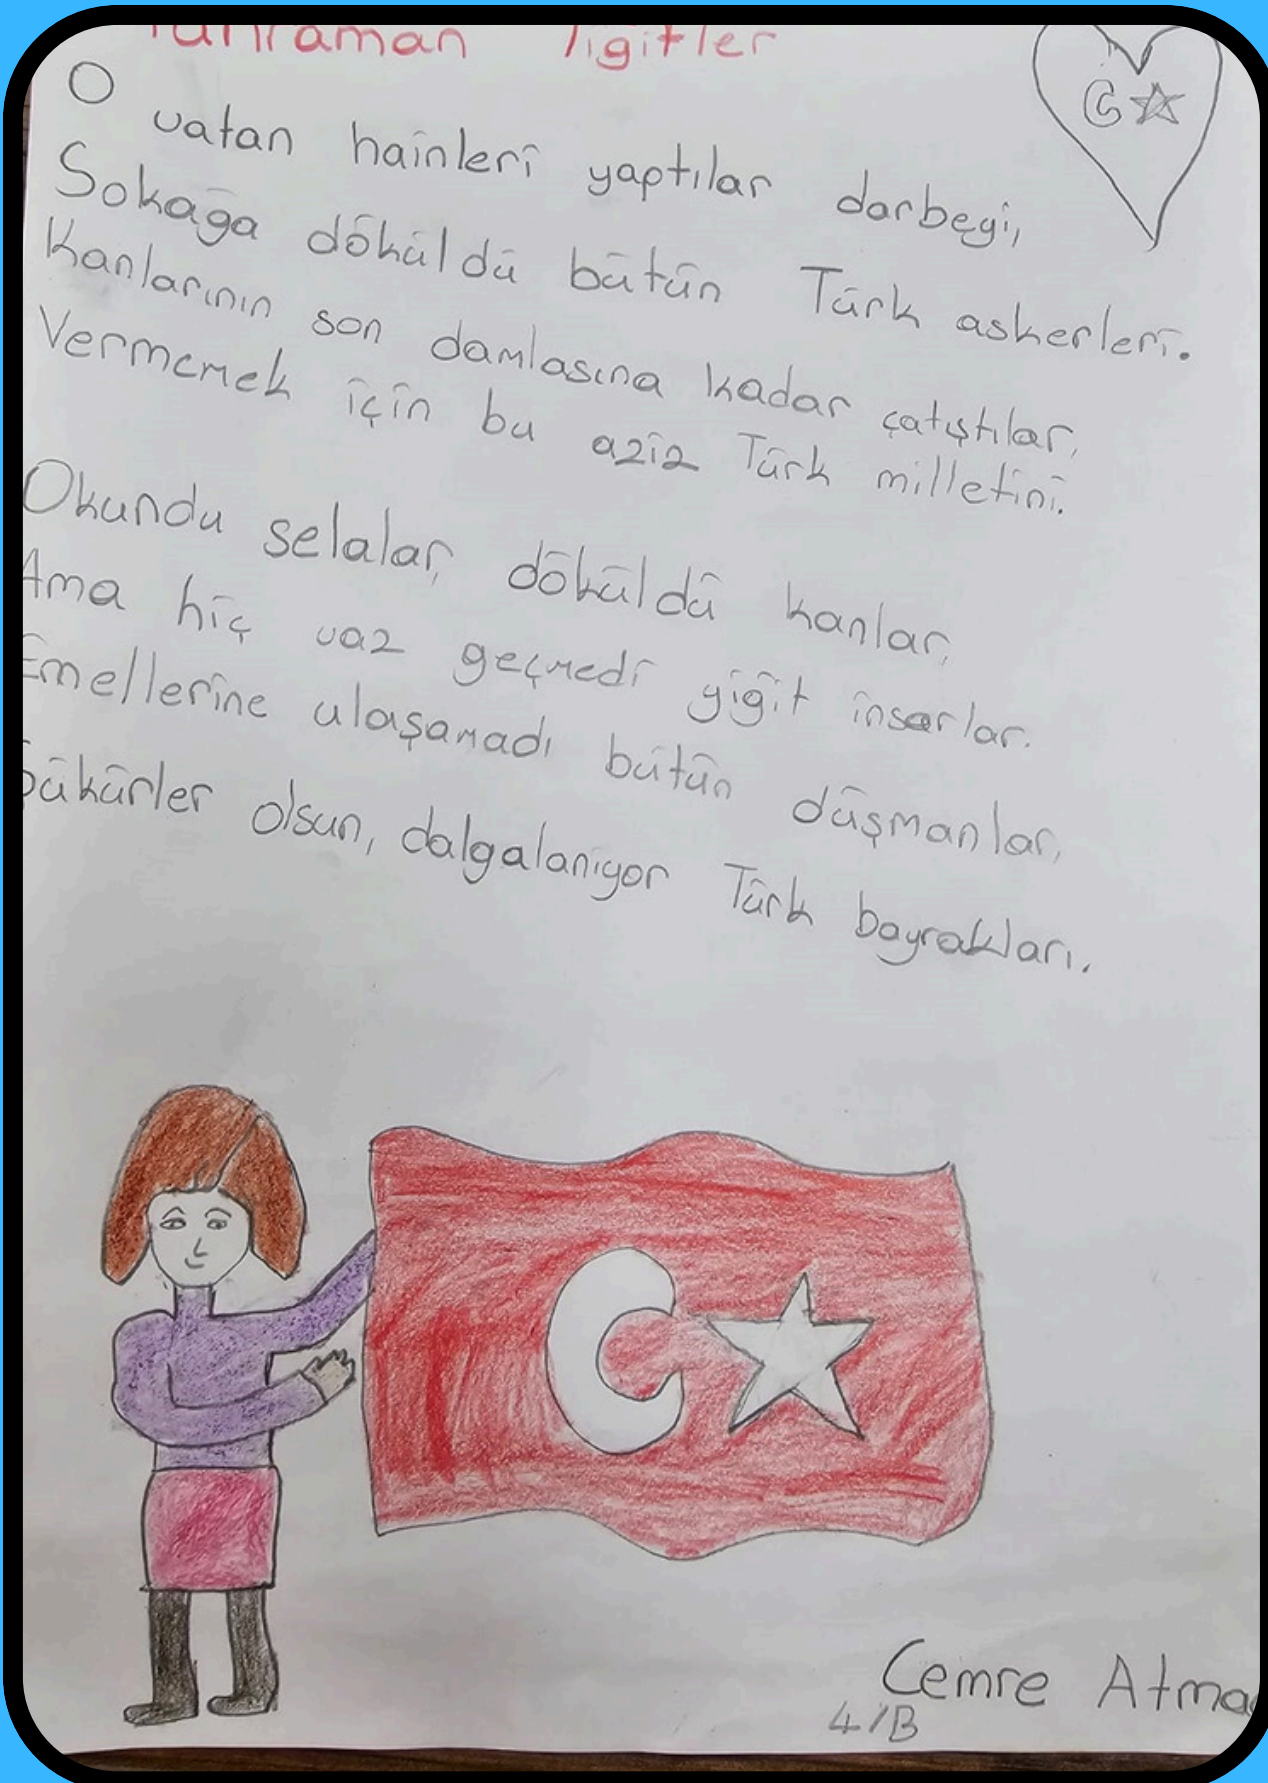 Kahraman Yigitler
O vatan hainleri yaptılar darbeyi,
Sokağa döküldü bütün Türk askerleri.
Kanlarının son damlasına kadar çatıştılar,
Vermemek için bu aziz Türk milletini.
Okundu selalar, döküldü kanlar,
Ama hiç vaz geçmedi yiğit insanlar.
Emellerine ulaşamadı bütün düşmanlar,
Şükürler olsun, dalgalanıyor Türk bayrakları.
Cemre
4/B